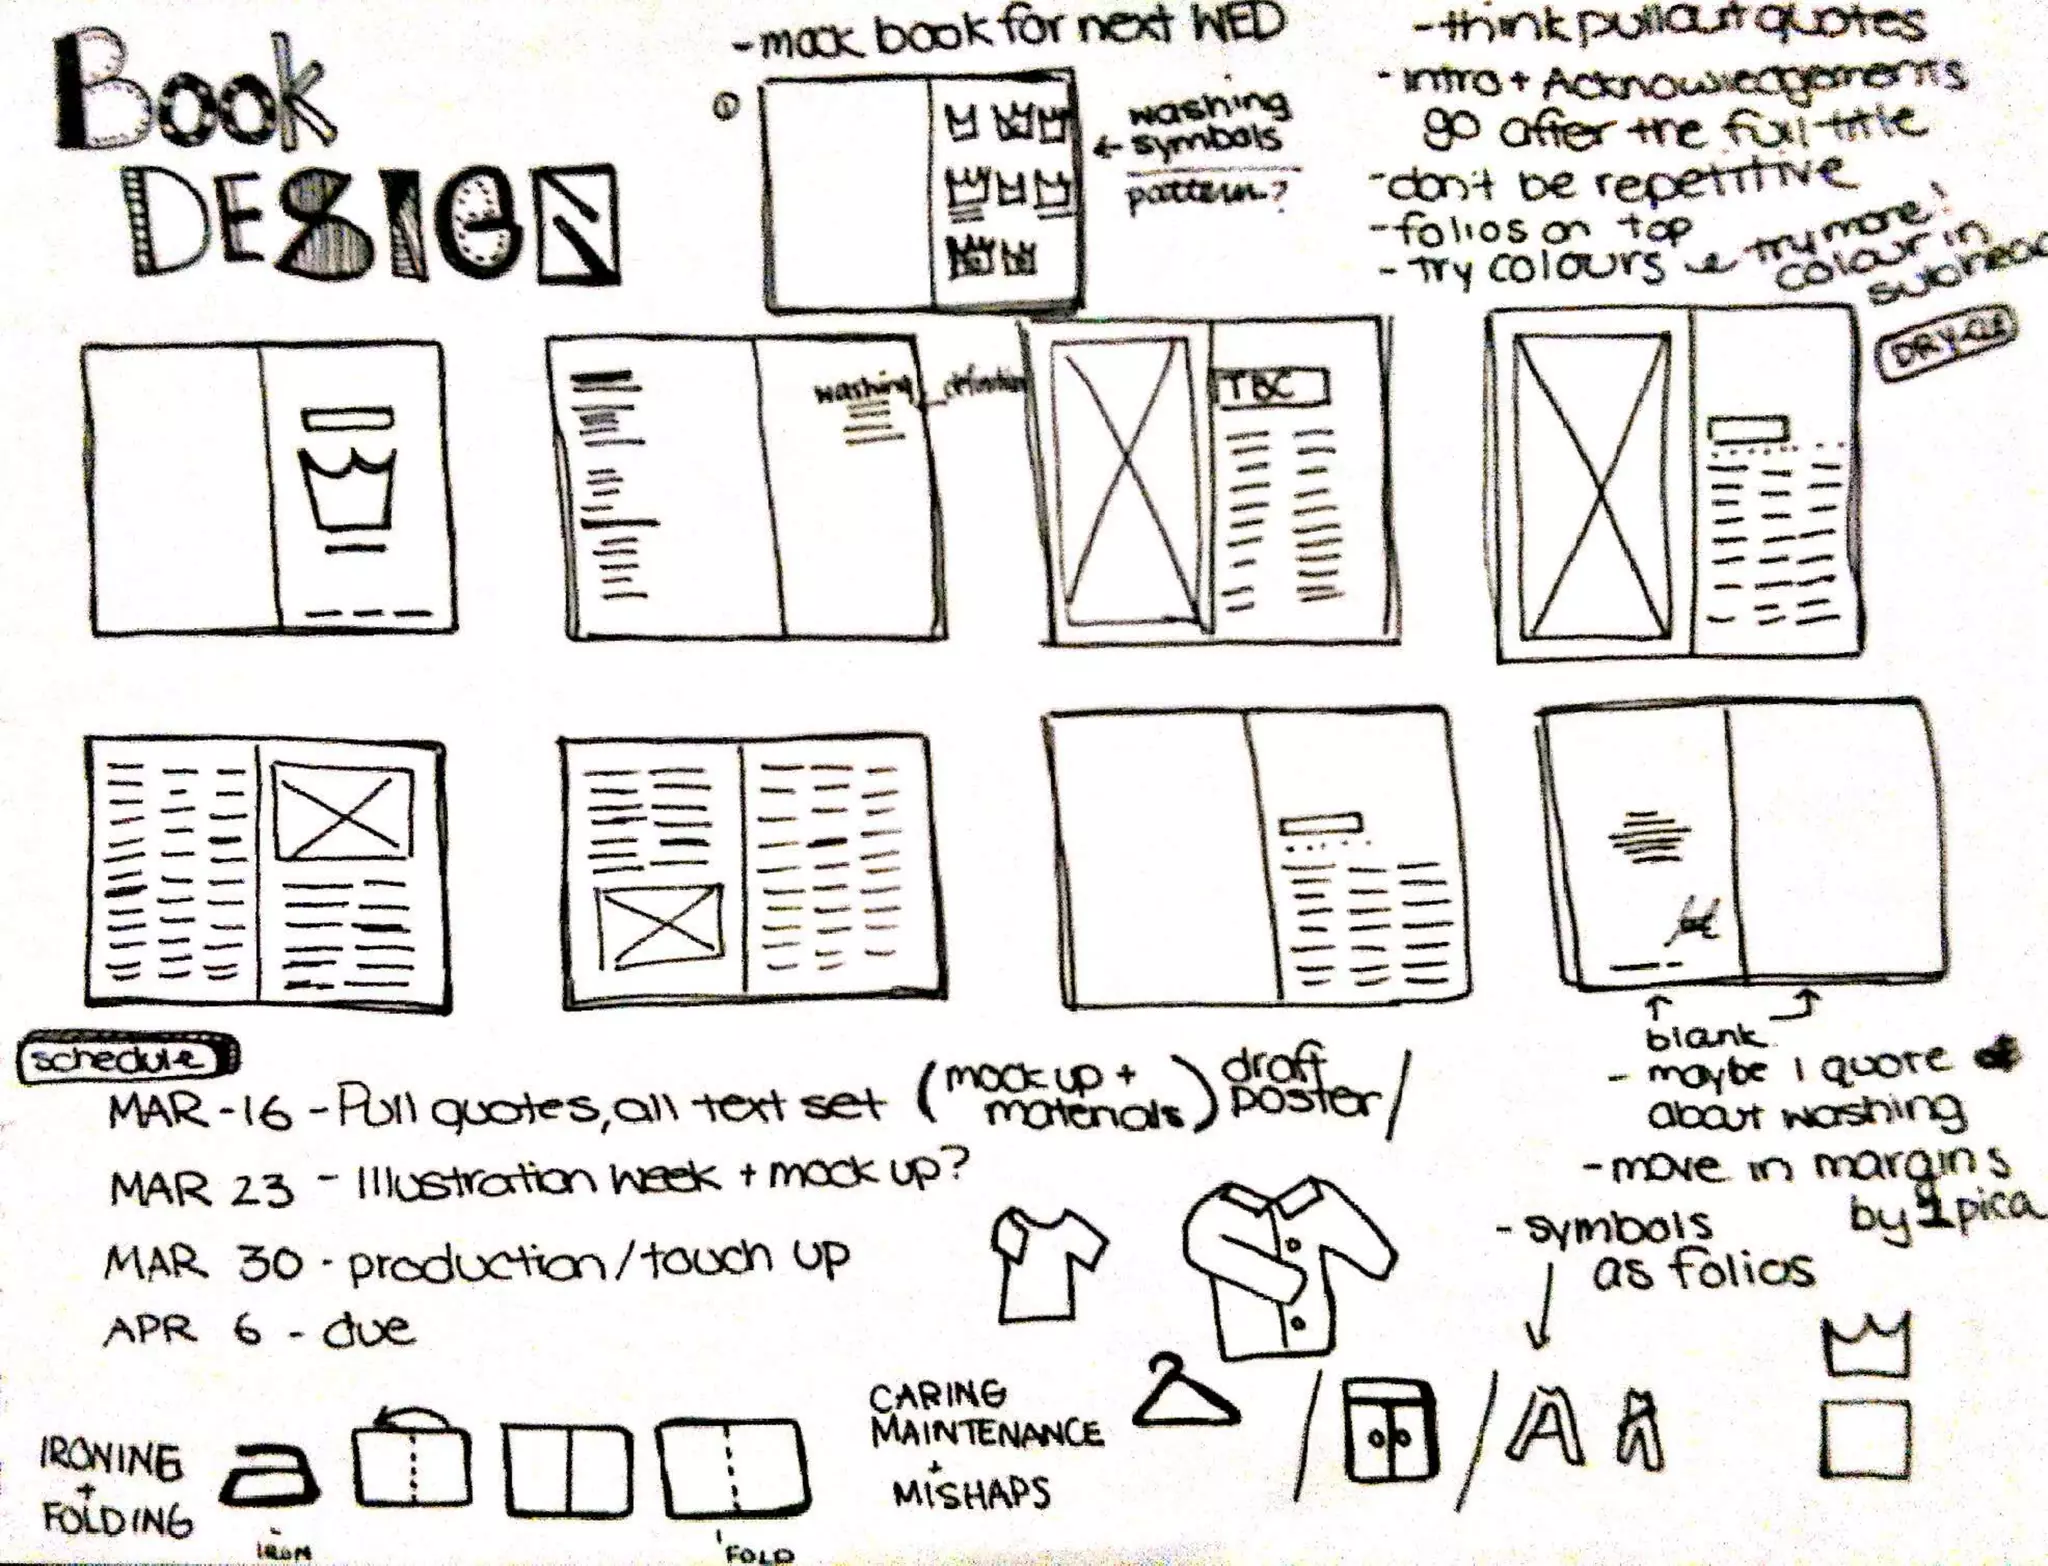 BOOK
DESIGN
-mock book for next WED
①
washing
←symbols
pattern?
-think pullout quotes
-intro + Acknowledgements
go after the full title
-don't be repetitive
-folios on top
-try colours
try more!
colour in
subhead
DRY-CLE
washing definition
TBC
schedule
MAR-16 - Pull quotes, all text set (mock up + materials) draft poster/
MAR 23 - Illustration week + mock up?
MAR 30 - production/touch up
APR 6 - due
blank
- maybe 1 quote
about washing
-move in margins
by 1 pica
-symbols
as folios
IRONING
+
FOLDING
IRON
FOLD
CARING
MAINTENANCE
+
MISHAPS